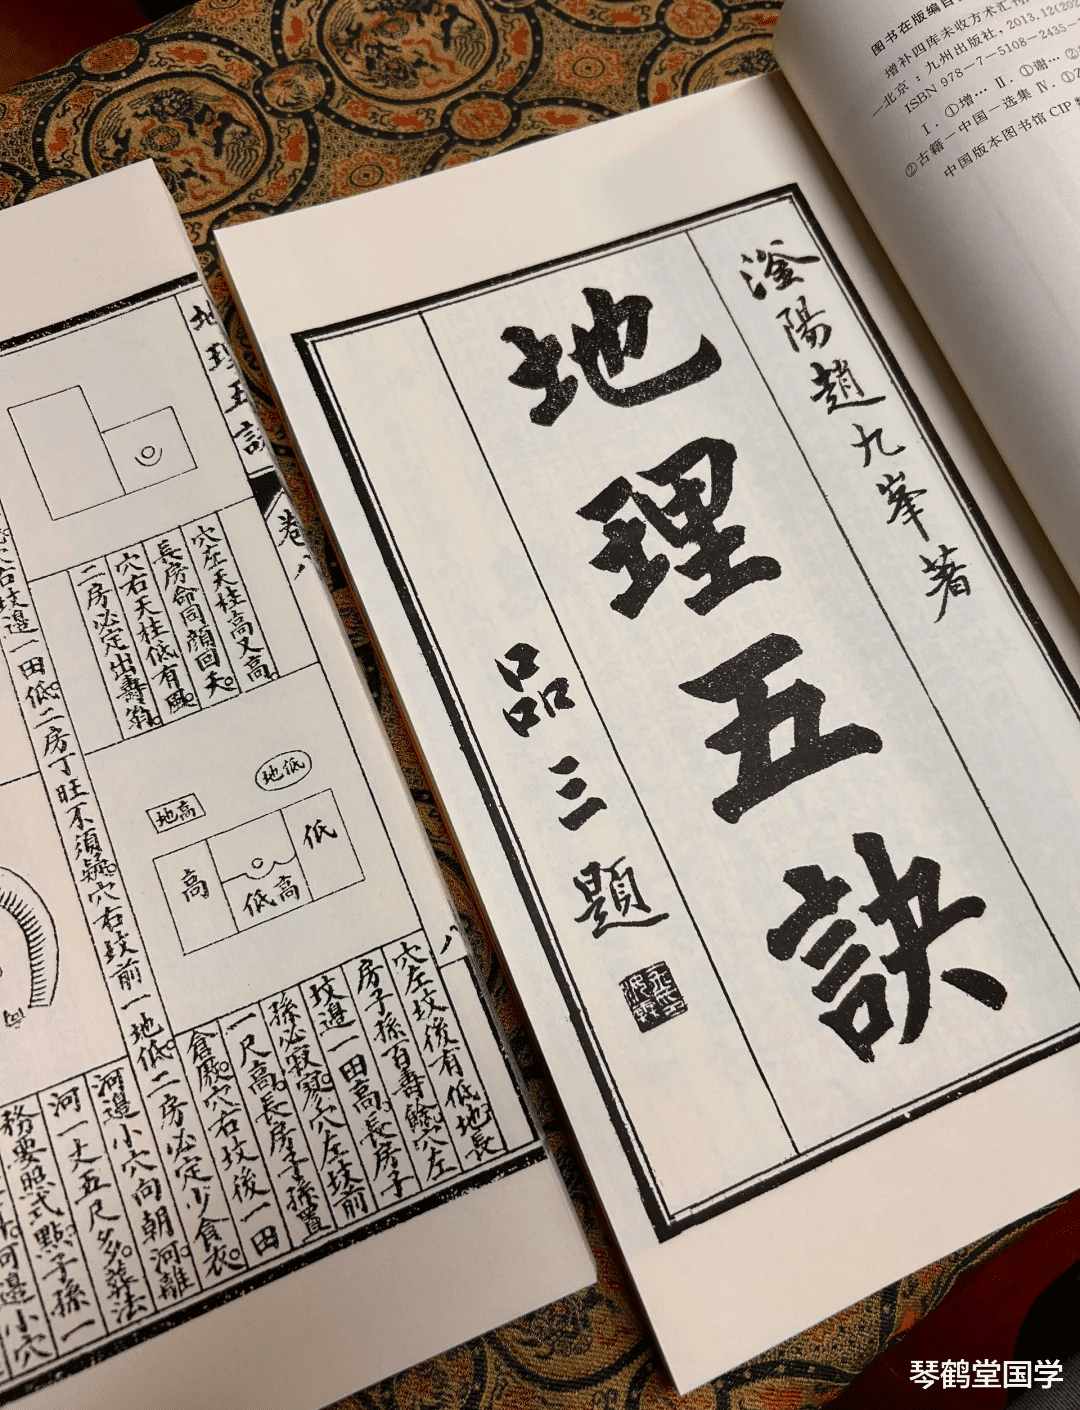 图书在版编目
增补四库未收方术汇刊
—北京：九州出版社，2013.12(202
ISBN 978-7-5108-2435-
Ⅰ．①增… Ⅱ．①谢… ②
②古籍—中国—选集 Ⅳ．①Z
中国版本图书馆 CIP
滏陽趙九峯著
地理五訣
品三題
地理五訣
卷八
八
穴左天柱高又高。
長房命同顏回夭。
穴右天柱低有風。
二房必定出壽翁。
地低
地高
高
低
低高
穴左坟後有低地長
房子孫百壽餘。穴左
坟邉一田高。長房子
孫必寂寥。穴左坟前
一尺高。長房子孫置
倉厫。穴右坟後一田
右坟邉一田低。二房丁旺不須疑。穴右坟前一地低。二房必定少食衣。
河邉小穴向朝河。離
河一丈五尺多。葬法
務要照式點。子孫一
河邉小穴
琴鹤堂国学